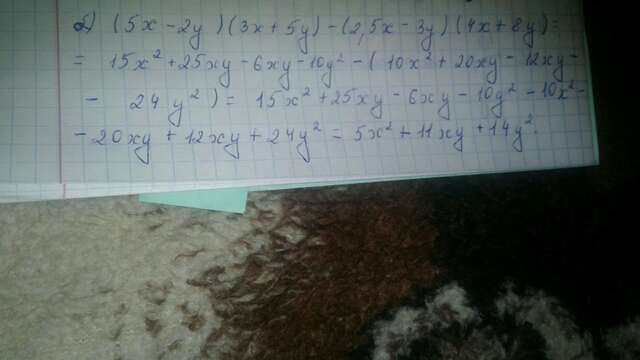 б) (5x - 2y)(3x + 5y) - (2,5x - 3y)(4x + 8y) =
= 15x² + 25xy - 6xy - 10y² - (10x² + 20xy - 12xy -
- 24y²) = 15x² + 25xy - 6xy - 10y² - 10x² -
- 20xy + 12xy + 24y² = 5x² + 11xy + 14y².